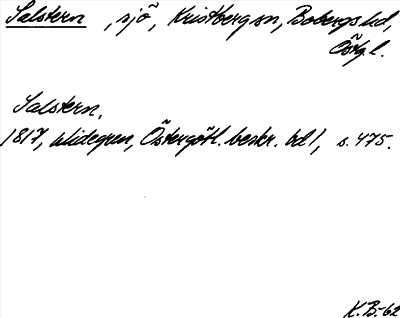 Salstern, sjö, Kristberg sn, Bobergs hd,
Östg l.
Salstern,
1817, Widegren, Östergötl. beskr. bd 1, s. 475.
K.B-62